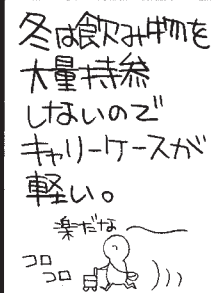 冬は飲み物を
大量持参
しないので
キャリーケースが
軽い。
楽だな
コロ
コロ